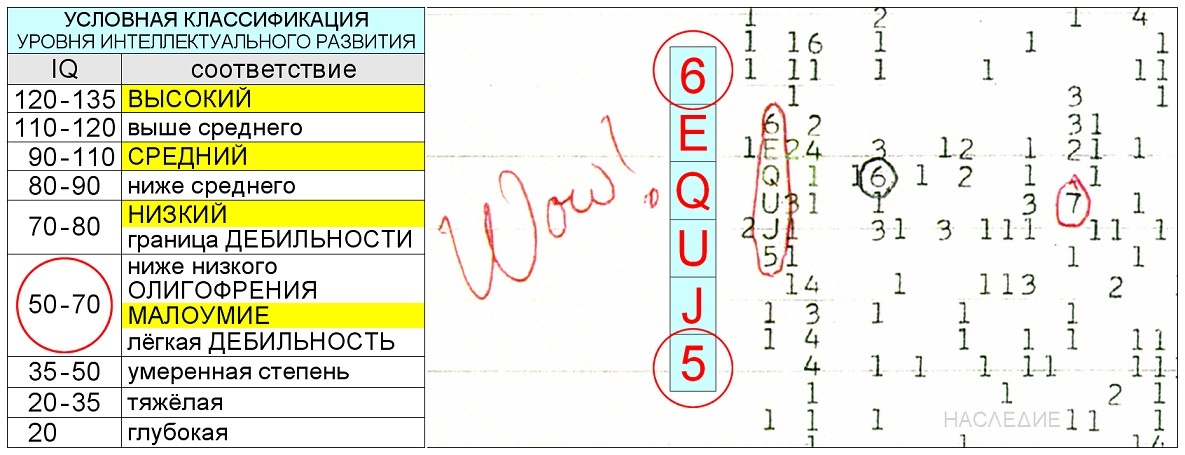 УСЛОВНАЯ КЛАССИФИКАЦИЯ
УРОВНЯ ИНТЕЛЛЕКТУАЛЬНОГО РАЗВИТИЯ
IQ соответствие
120-135 ВЫСОКИЙ
110-120 выше среднего
90-110 СРЕДНИЙ
80-90 ниже среднего
70-80 НИЗКИЙ
граница ДЕБИЛЬНОСТИ
50-70 ниже низкого
ОЛИГОФРЕНИЯ
МАЛОУМИЕ
лёгкая ДЕБИЛЬНОСТЬ
35-50 умеренная степень
20-35 тяжёлая
20 глубокая
Wow!
6
E
Q
U
J
5
1 2 1 4
1 16 1 1 1
1 11 1 1 11
1 3 1
6 2 31
1E24 3 12 1 21 1
Q 1 16 1 2 1 1
U31 1 3 7 1
2J1 31 3 111 11 1
51 1 1
14 1 113 2
1 3 1 1 1
1 4 1 1 1 11
4 1 1 1 11 11
1 1 2 1
1 1 1 1 11 1
1 1 14
НАСЛЕДИЕ